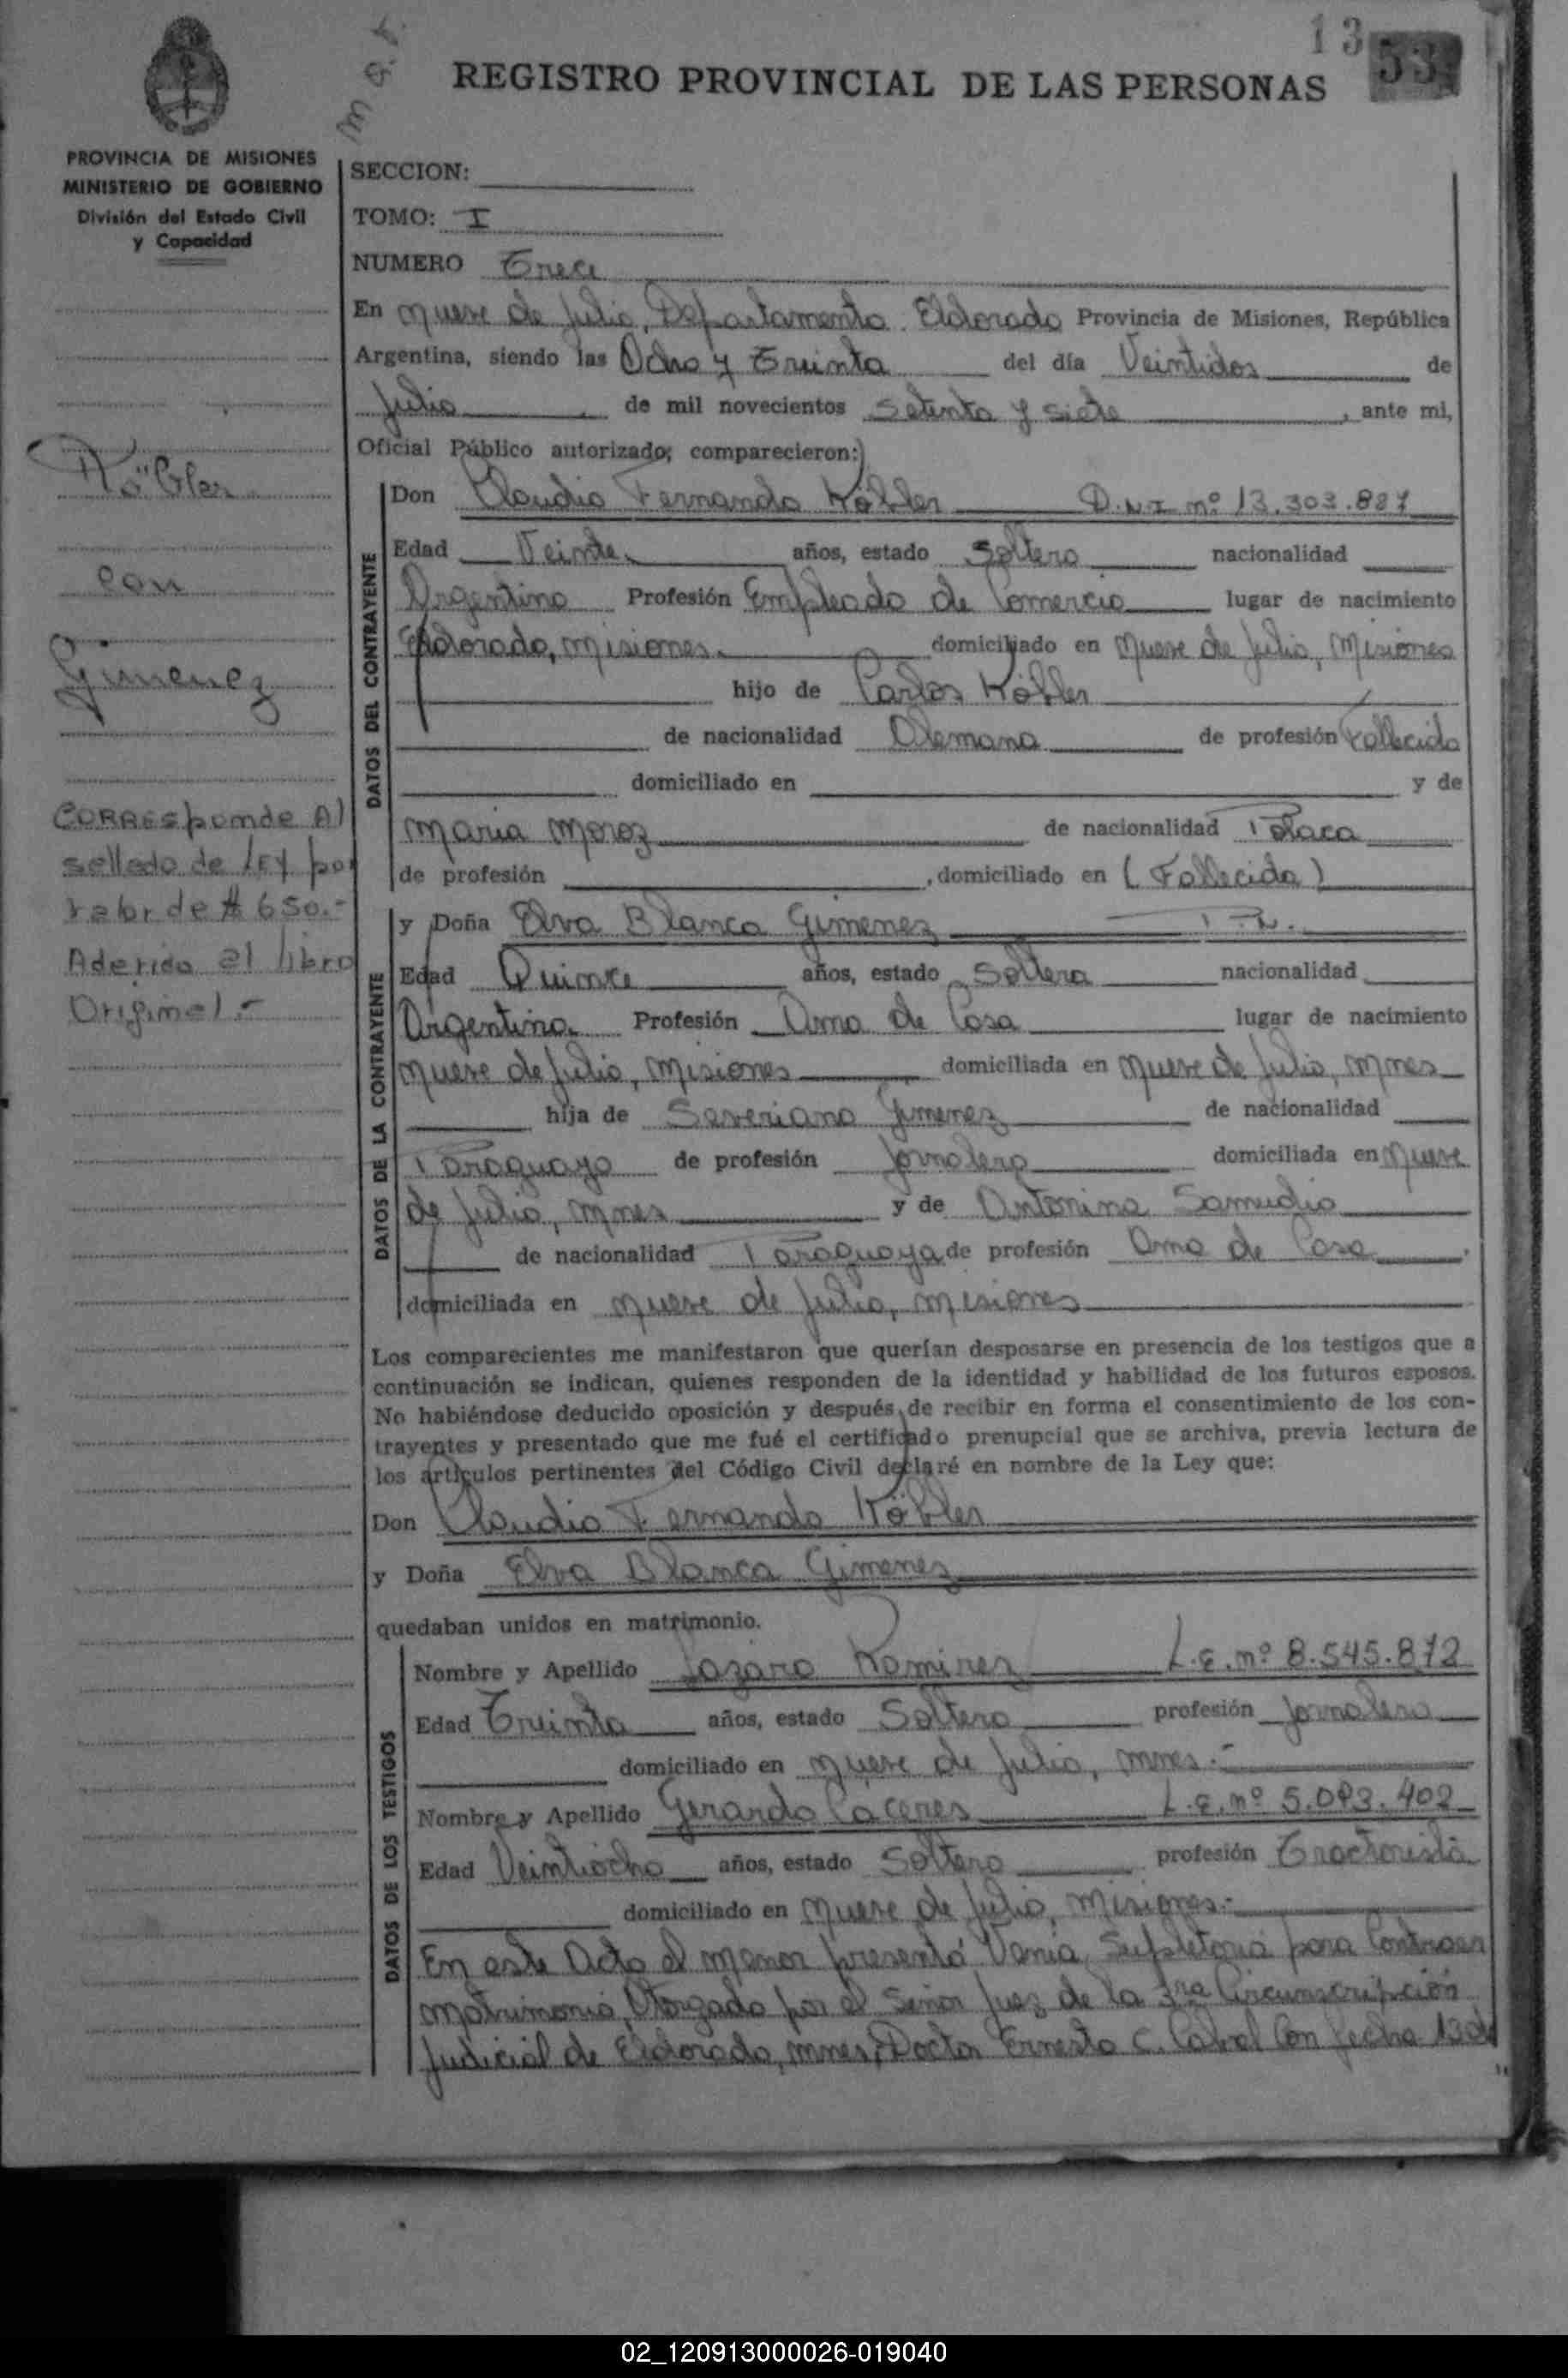 13
53
mat.
REGISTRO PROVINCIAL DE LAS PERSONAS
PROVINCIA DE MISIONES
MINISTERIO DE GOBIERNO
División del Estado Civil
y Capacidad
Köhler
con
Gimenez
CORRESponde Al
sellado de LEY por
valor de $ 650.-
Aderido al libro
Original.-
SECCION:
TOMO: I
NUMERO Trece
En Nueve de Julio, Departamento Eldorado Provincia de Misiones, República
Argentina, siendo las Ocho y Treinta del día Veintidos de
Julio de mil novecientos Setenta y siete, ante mi,
Oficial Público autorizado; comparecieron:
DATOS DEL CONTRAYENTE
Don Claudio Fernando Köhler D.N.I nº 13.303.887
Edad Veinte años, estado Soltero nacionalidad
Argentino Profesión Empleado de Comercio lugar de nacimiento
Eldorado, Misiones domiciliado en Nueve de Julio, Misiones
hijo de Carlos Köhler
de nacionalidad Alemana de profesión Fallecido
domiciliado en y de
Maria Moroz de nacionalidad Polaca
de profesión , domiciliado en (Fallecida)
DATOS DE LA CONTRAYENTE
y Doña Elva Blanca Gimenez
Edad Quince años, estado Soltera nacionalidad
Argentina Profesión Ama de Casa lugar de nacimiento
Nueve de Julio, Misiones domiciliada en Nueve de Julio, Mnes
hija de Severiano Gimenez de nacionalidad
Paraguayo de profesión Jornalero domiciliada en Nueve
de Julio, Mnes y de Antonina Samudio
de nacionalidad Paraguaya de profesión Ama de Casa
domiciliada en Nueve de Julio, Misiones
Los comparecientes me manifestaron que querían desposarse en presencia de los testigos que a
continuación se indican, quienes responden de la identidad y habilidad de los futuros esposos.
No habiéndose deducido oposición y después de recibir en forma el consentimiento de los con-
trayentes y presentado que me fué el certificado prenupcial que se archiva, previa lectura de
los artículos pertinentes del Código Civil declaré en nombre de la Ley que:
Don Claudio Fernando Köhler
y Doña Elva Blanca Gimenez
quedaban unidos en matrimonio.
DATOS DE LOS TESTIGOS
Nombre y Apellido Lazaro Ramirez L.E. nº 8.545.872
Edad Treinta años, estado Soltero profesión Jornalero
domiciliado en Nueve de Julio, Mnes.-
Nombre y Apellido Gerardo Caceres L.E. nº 5.093.402
Edad Veintiocho años, estado Soltero profesión Tractorista
domiciliado en Nueve de Julio, Misiones.-
En este Acto el menor presentó Venia Supletoria para Contraer
Matrimonio, Otorgado por el Señor Juez de la 3ra Circunscripción
Judicial de Eldorado, Mnes, Doctor Ernesto C. Cabral Con fecha 13 de
02_120913000026-019040